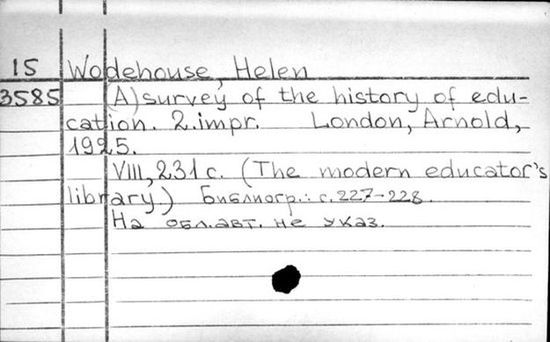 15 Wodehouse, Helen
3585 (A) survey of the history of edu-
cation. 2.impr. London, Arnold,
1925.
VIII, 231 с. (The modern educator's
library.) Библиогр.: с.227-228.
На обл.авт. не указ.